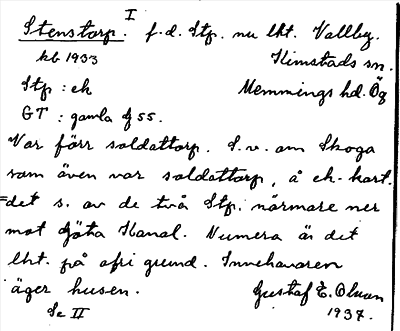 I
Stenstorp. f.d. Stp. nu lht. Vallby.
hb 1933 Kimstads sn.
Stp : ek Memmings hd. Ög
GT : gamla § 55.
Var förr soldattorp. S.v. om Skoga
som även var soldattorp, å ek. kart.
=det s. av de två Stp. närmare ner
mot Göta Kanal. Numera är det
lht. på ofri grund. Innehavaren
äger husen. Gustaf E. Olsson
Se II 1937.